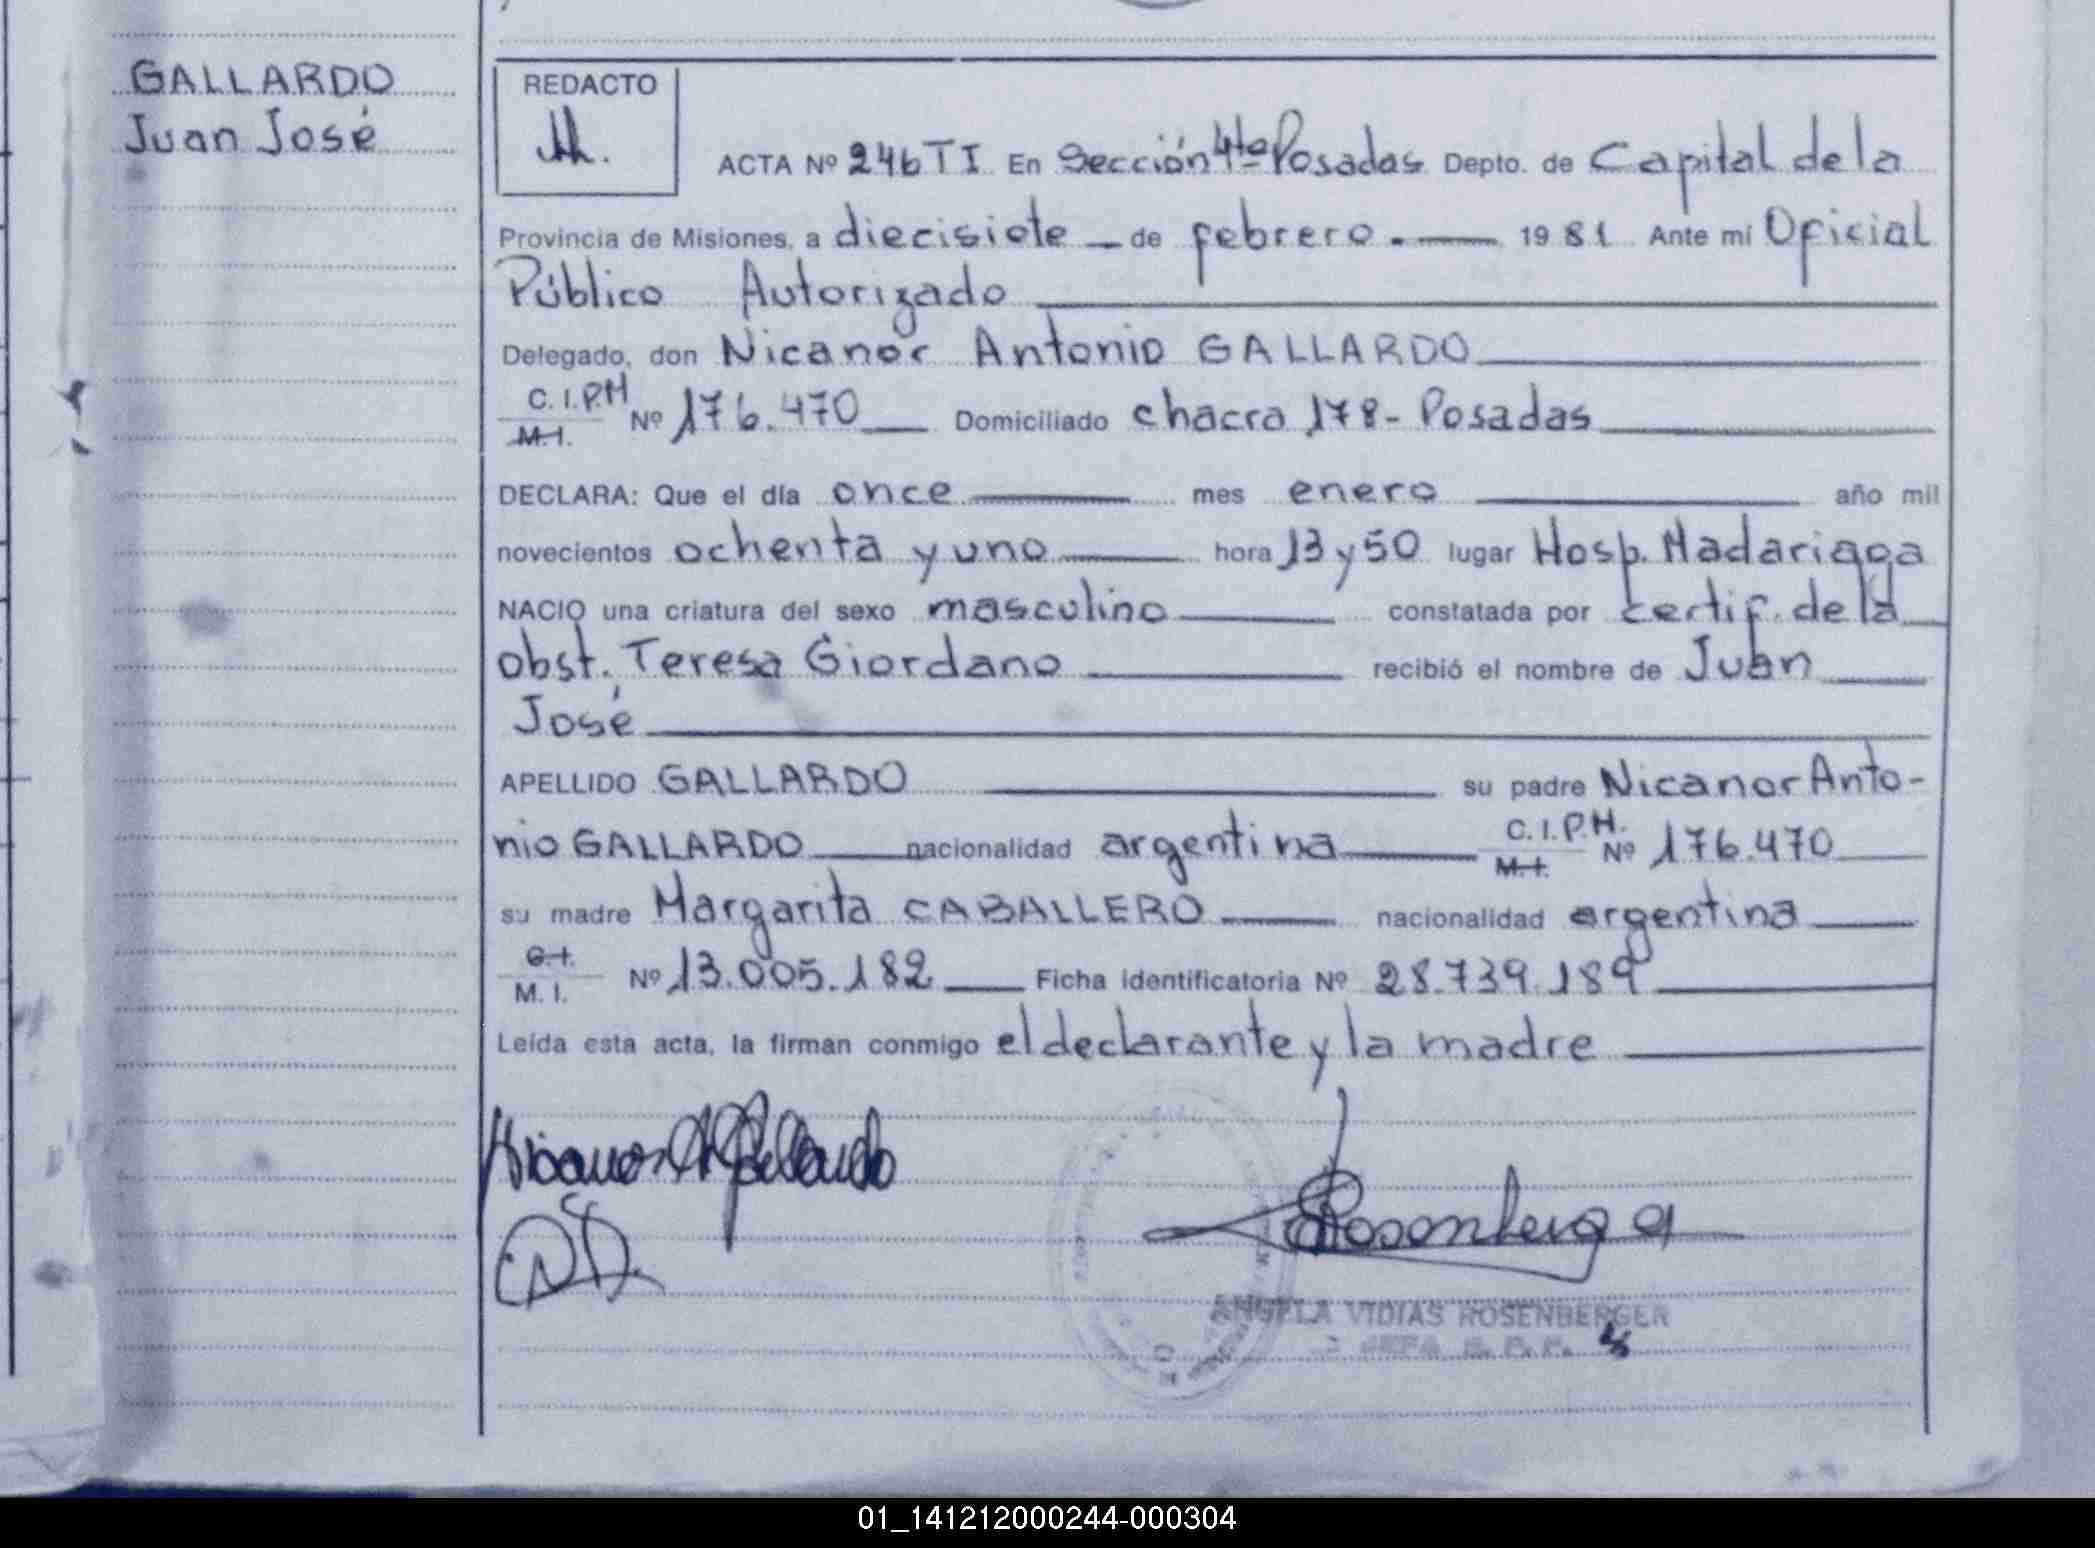 GALLARDO
Juan José
REDACTO
ACTA Nº 246 TI En Sección 4ta Posadas Depto. de Capital de la
Provincia de Misiones, a diecisiete de febrero. 1981 Ante mí Oficial
Público Autorizado
Delegado, don Nicanor Antonio GALLARDO
C.I.P.M
M.I. Nº 176.470 Domiciliado chacra 178- Posadas
DECLARA: Que el día once mes enero año mil
novecientos ochenta y uno hora 13 y 50 lugar Hosp. Madariaga
NACIO una criatura del sexo masculino constatada por certif. de la
obst. Teresa Giordano recibió el nombre de Juan
José
APELLIDO GALLARDO su padre Nicanor Anto-
nio GALLARDO nacionalidad argentina C.I.P.M.
M.I. Nº 176.470
su madre Margarita CABALLERO nacionalidad argentina
C.I.
M.I. Nº 13.005.182 Ficha identificatoria Nº 28.739.189
Leída esta acta, la firman conmigo el declarante y la madre
Nicanor A Gallardo
ANGELA VIDIAS ROSENBERGER
JEFA
01_141212000244-000304